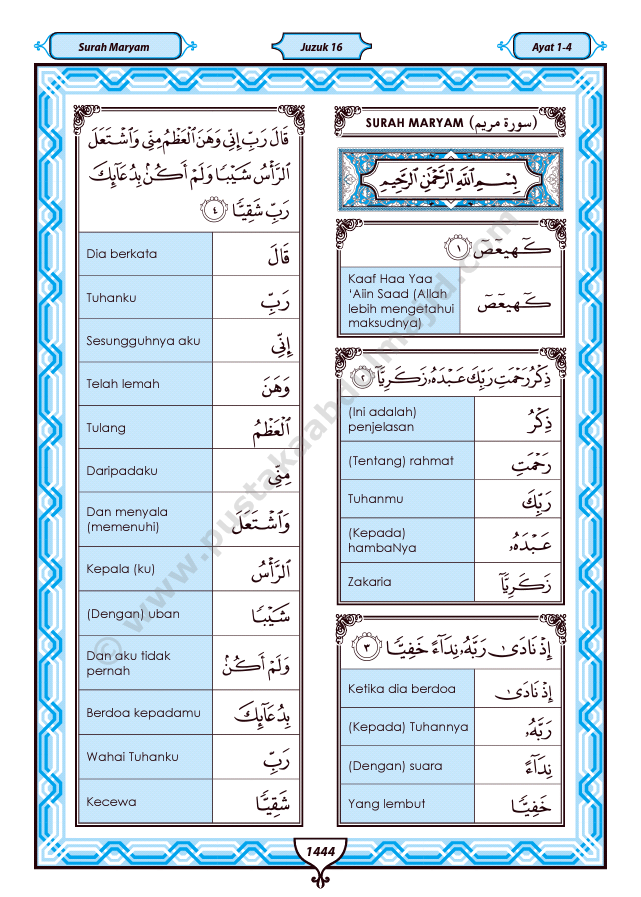 Surah Maryam
Juzuk 16
Ayat 1-4
SURAH MARYAM (سورة مريم)
بِسْمِ ٱللَّهِ ٱلرَّحْمَٰنِ ٱلرَّحِيمِ
كٓهيعٓصٓ ١
Kaaf Haa Yaa
'Aiin Saad (Allah
lebih mengetahui
maksudnya)
كٓهيعٓصٓ
ذِكْرُ رَحْمَتِ رَبِّكَ عَبْدَهُۥ زَكَرِيَّآ ٢
(Ini adalah)
penjelasan
ذِكْرُ
(Tentang) rahmat
رَحْمَتِ
Tuhanmu
رَبِّكَ
(Kepada)
hambaNya
عَبْدَهُۥ
Zakaria
زَكَرِيَّآ
إِذْ نَادَىٰ رَبَّهُۥ نِدَآءً خَفِيًّا ٣
Ketika dia berdoa
إِذْ نَادَىٰ
(Kepada) Tuhannya
رَبَّهُۥ
(Dengan) suara
نِدَآءً
Yang lembut
خَفِيًّا
قَالَ رَبِّ إِنِّى وَهَنَ ٱلْعَظْمُ مِنِّى وَٱشْتَعَلَ
ٱلرَّأْسُ شَيْبًا وَلَمْ أَكُنۢ بِدُعَآئِكَ
رَبِّ شَقِيًّا ٤
Dia berkata
قَالَ
Tuhanku
رَبِّ
Sesungguhnya aku
إِنِّى
Telah lemah
وَهَنَ
Tulang
ٱلْعَظْمُ
Daripadaku
مِنِّى
Dan menyala
(memenuhi)
وَٱشْتَعَلَ
Kepala (ku)
ٱلرَّأْسُ
(Dengan) uban
شَيْبًا
Dan aku tidak
pernah
وَلَمْ أَكُنۢ
Berdoa kepadamu
بِدُعَآئِكَ
Wahai Tuhanku
رَبِّ
Kecewa
شَقِيًّا
1444
© www.pustakaabdulmajid.com